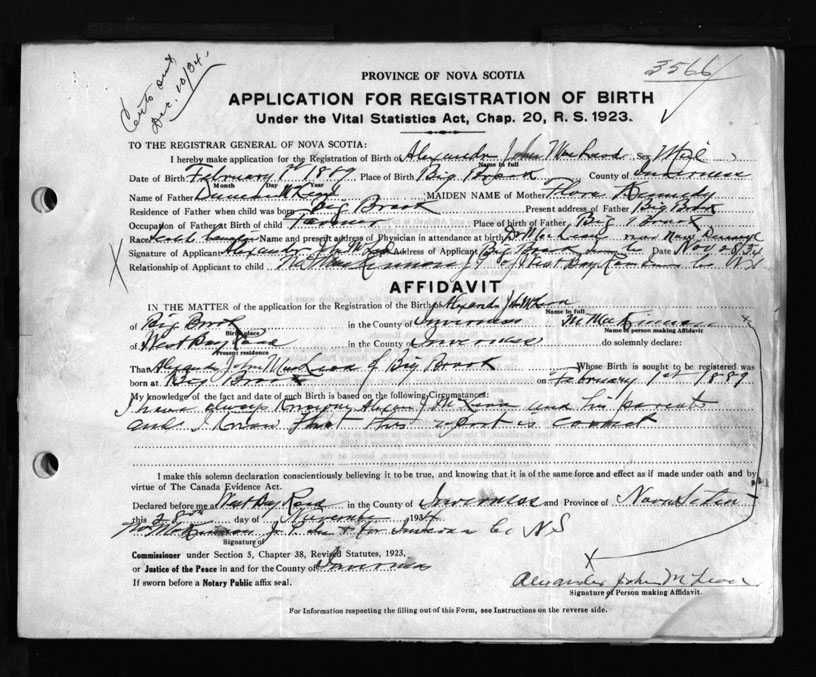 Certs out
Dec. 10/34.
3566
PROVINCE OF NOVA SCOTIA
APPLICATION FOR REGISTRATION OF BIRTH
Under the Vital Statistics Act, Chap. 20, R. S. 1923.
TO THE REGISTRAR GENERAL OF NOVA SCOTIA:
I hereby make application for the Registration of Birth of Alexander John Sex
Name in full
Date of Birth February 1st 1889 Place of Birth Big Brook County of Inverness
Month Day Year
Name of Father Duncan MAIDEN NAME of Mother Flora Kennedy
Residence of Father when child was born Big Brook Present address of Father Big Brook
Occupation of Father at Birth of child Farmer Place of birth of Father Big Brook
Race Name and present address of Physician in attendance at birth Dr
Signature of Applicant Alexander John Address of Applicant Big Brook Date Nov 28/34
Relationship of Applicant to child
AFFIDAVIT
IN THE MATTER of the application for the Registration of the Birth of Alexander John
Name in full
of Big Brook in the County of Inverness
Birthplace Name of person making Affidavit
of West Bay Road in the County of Inverness do solemnly declare:
Present residence
That John of Big Brook Whose Birth is sought to be registered was
born at Big Brook on February 1st 1889
My knowledge of the fact and date of such Birth is based on the following Circumstances:
I have always J. and his parents
and I know that this report is correct
I make this solemn declaration conscientiously believing it to be true, and knowing that it is of the same force and effect as if made under oath and by
virtue of The Canada Evidence Act.
Declared before me West Bay Road in the County of Inverness and Province of Nova Scotia
this 28th day of November 1934
J. P. for Inverness Co NS
Signature of
Commissioner under Section 5, Chapter 38, Revised Statutes, 1923,
or Justice of the Peace in and for the County of Inverness
If sworn before a Notary Public affix seal.
Alexander John
Signature of Person making Affidavit.
For Information respecting the filling out of this Form, see Instructions on the reverse side.